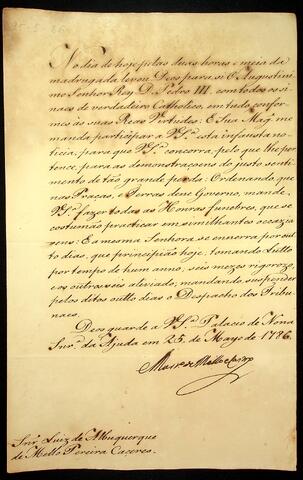 25-5-86
No dia de hoje pelas duas horas e meia da
madrugada levou Deos para si O Augustissi-
mo Senhor Rey D. Pedro III, com todos os si-
naes de verdadeiro Catholico, em tudo confor-
mes ás suas Reaes Virtudes: E Sua Mag.e me
manda participar a V.S.a esta infausta no-
ticia, para que V.S.a concorra, pelo que lhe per-
tence, para as demonstraçoens do justo senti-
mento de tão grande perda: Ordenando, que
nas Praças, e Terras desse Governo, mande
V.S.a fazer todas as Honras funebres, que se
costumão practicar em similhantes occazia-
oens: E a mesma Senhora se encerra por outo
dias, que principião hoje, tomando Lutto
por tempo de hum anno, seis mezes rigorozo,
e os outros seis aleviado; mandando suspender
pelos ditos outto dias o Despacho dos Tribu-
naes.
Deos guarde a V.S.a Palacio de Nossa
Snr.a da Ajuda em 25. de Mayo de 1786.
Mart.o de Mello e Castro
Snr. Luiz de Albuquerque
de Mello Pereira Caceres.